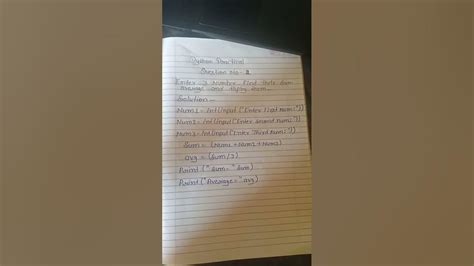 Python Practical
Question No - 2
Enter 3 Number find their Sum
average and display them...
Solution...
Num1 = int(input("Enter First Num:"))
Num2 = int(input("Enter Second Num:"))
Num3 = int(input("Enter Third Num:"))
Sum = (Num1 + Num2 + Num3)
avg = (Sum/3)
Print ("Sum=" Sum)
Print ("Average=" avg)